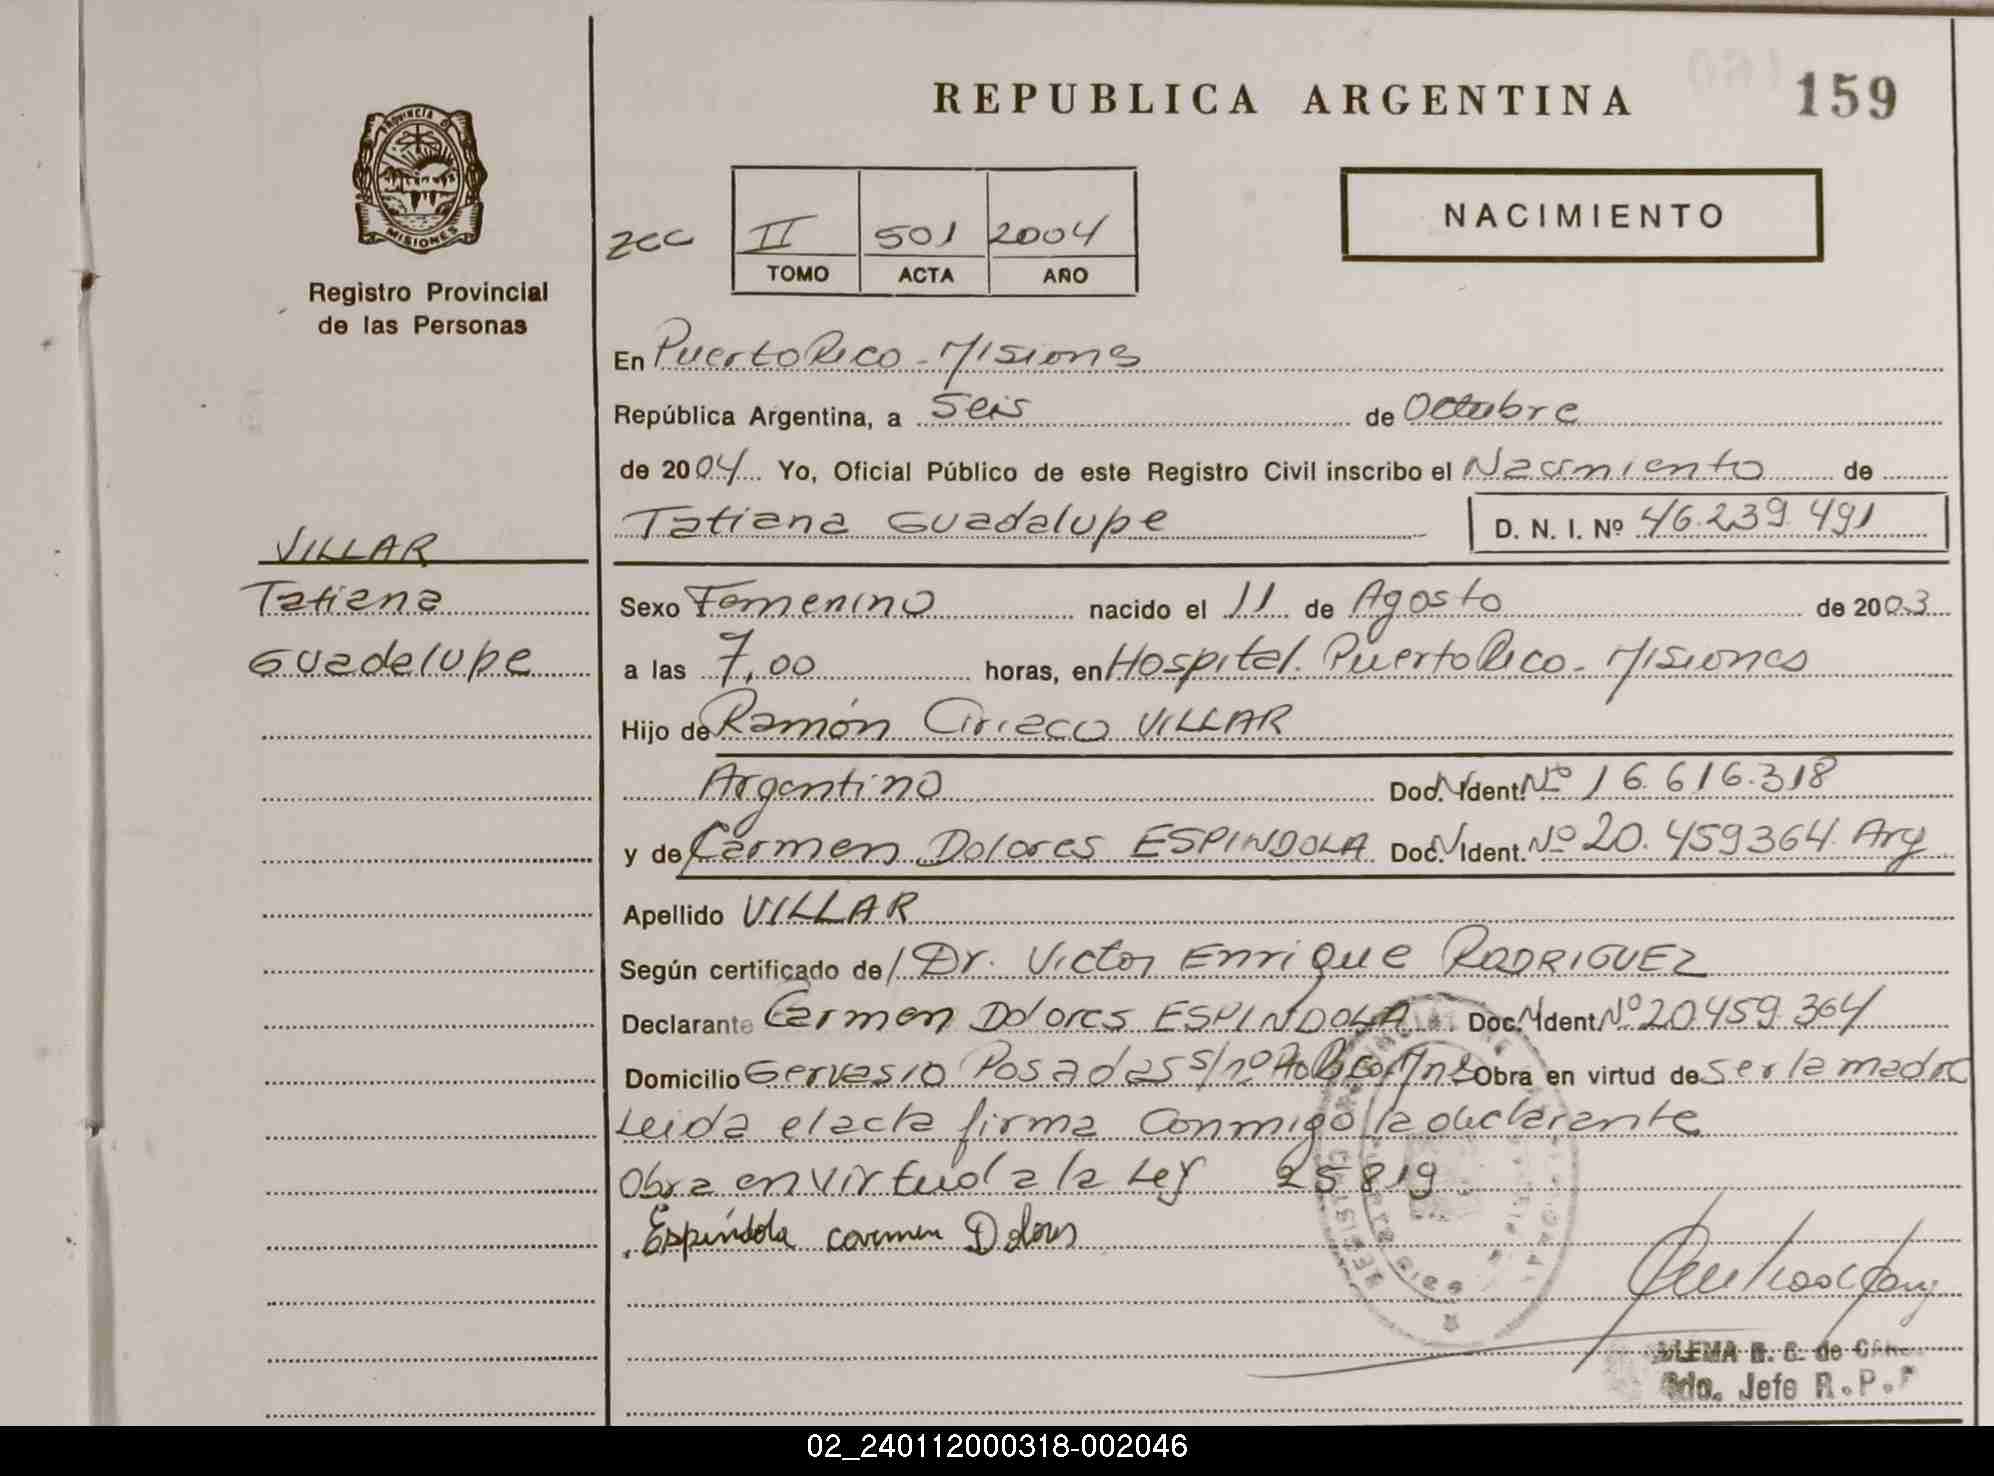 REPUBLICA ARGENTINA
159
PROVINCIA DE
MISIONES
Registro Provincial
de las Personas
II 501 2004
TOMO ACTA AÑO
NACIMIENTO
En Puerto Rico - Misiones
República Argentina, a Seis de Octubre
de 2004 Yo, Oficial Público de este Registro Civil inscribo el Nacimiento de
Tatiana Guadalupe D. N. I. Nº 46.239.491
VILLAR
Tatiana
Guadalupe
Sexo Femenino nacido el 11 de Agosto de 2003
a las 7,00 horas, en Hospital. Puerto Rico - Misiones
Hijo de Ramón Ciriaco VILLAR
Argentino Doc. N. Ident. Nº 16.616.318
y de Carmen Dolores ESPINDOLA Doc. N. Ident. Nº 20.459364 Arg
Apellido VILLAR
Según certificado de Dr. Victor Enrique RODRIGUEZ
Declarante Carmen Dolores ESPINDOLA Doc. N. Ident Nº 20459.364
Domicilio Gervasio Posadas s/nº Pto Rico Mnes Obra en virtud de ser la madre
Leida el acta firma conmigo la declarante
Obra en virtud a la Ley 25819
Espíndola carmen Dolores
R. G. de
Jefe R.P.
02_240112000318-002046